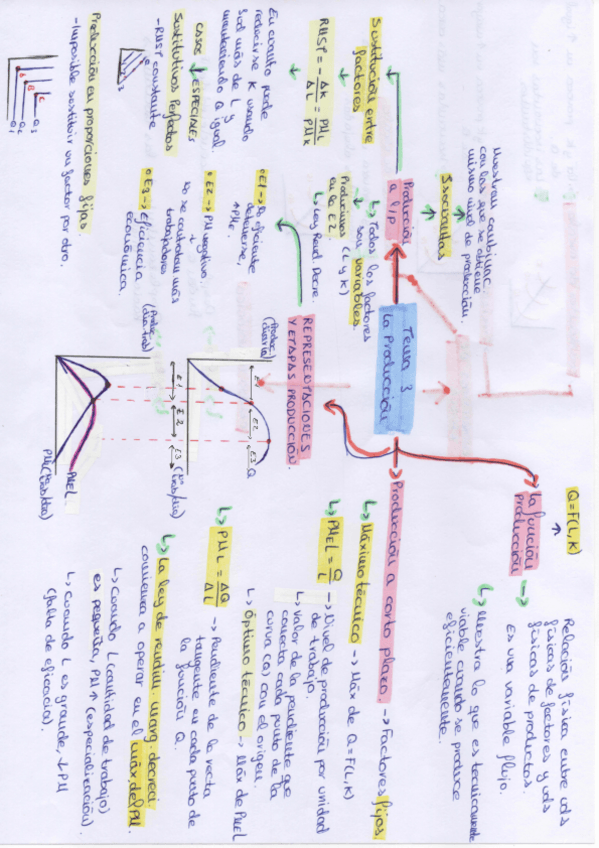 Tema 3
La Producción
La función
producción
Q=F(L,K)
Relación física entre uds
físicas de factores y uds
físicas de productos.
Es una variable flujo.
↳ Muestra lo que es tecnicamente
viable cuando se produce
eficientemente.
Producción a corto plazo. → Factores fijos.
↳ Máximo técnico → Máx de Q=F(L,K)
↳ PMeL = Q/L → Nivel de producción por unidad
de trabajo.
↳ Valor de la pendiente que
conecta cada punto de la
curva (Q) con el origen.
↳ Óptimo técnico → Máx de PMeL
↳ PML = ΔQ/ΔL → Pendiente de la recta
tangente en cada punto de
la función Q.
↳ La ley de rendim. marg. decreci.
comienza a operar en el máx. del PM.
↳ Cuando L (cantidad de trabajo)
es pequeña, PM↑ (especialización).
↳ Cuando L es grande, ↓PM
(falta de eficacia).
REPRESENTACIONES
Y ETAPAS PRODUCCIÓN.
(Produc/
diaria)
E1
E2
E3
Q
E1
E2
E3
PMeL
○E1→ Es eficiente
detenerse,
↑PMe.
○E2→ PM negativo.
No se contratan más
trabajadores
○E3→ Eficiencia
económica.
Producción
a l/p
↳ Todos los factores
son variables.
(L y K)
Producimos
en la E2.
↳ Ley Rend. Decre.
Isocuantas
Muestran combinac.
con las que se obtiene
mismo nivel de producción.
Sustitución entre
factores
RMST = -ΔK/ΔL = PML/PMK
En cuanto puede
reducirse K usando
sol más de L y
manteniendo Q igual.
CASOS ↓ ESPECIALES
Sustitutivos Perfectos
-RMST constante
Producción en proporciones fijas.
-Imposible sustituir un factor por otro.
A
B
C
Q1
Q2
Q3